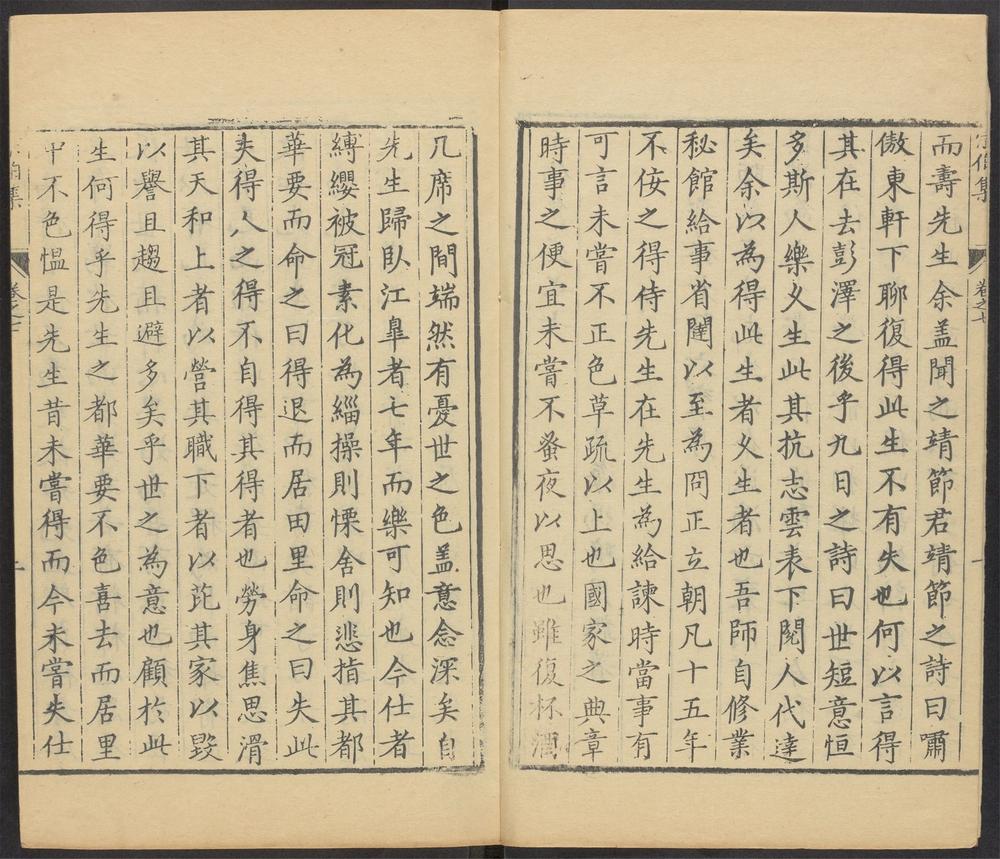 宗伯集
卷之七
而壽先生余盖聞之靖節君靖節之詩曰嘯
傲東軒下聊復得此生不有失也何以言得
其在去彭澤之後乎九日之詩曰世短意恒
多斯人樂乆生此其抗志雲表下閱人代達
矣余以為得此生者乆生者也吾師自修業
秘館給事省闥以至為冏正立朝凡十五年
不佞之得侍先生在先生為給諫時當事有
可言未嘗不正色草疏以上也國家之典章
時事之便宜未嘗不蚤夜以思也雖復杯𣺌
几席之間端然有憂世之色盖意念深矣自
先生歸臥江臯者七年而樂可知也今仕者
縛纓被冠素化為緇操則慄舍則悲指其都
華要而命之曰得退而居田里命之曰失此
夫得人之得不自得其得者也勞身焦思滑
其天和上者以營其職下者以芘其家以毀
以譽且趨且避多矣乎世之為意也顧於此
生何得乎先生之都華要不色喜去而居里
中不色愠是先生昔未嘗得而今未嘗失仕